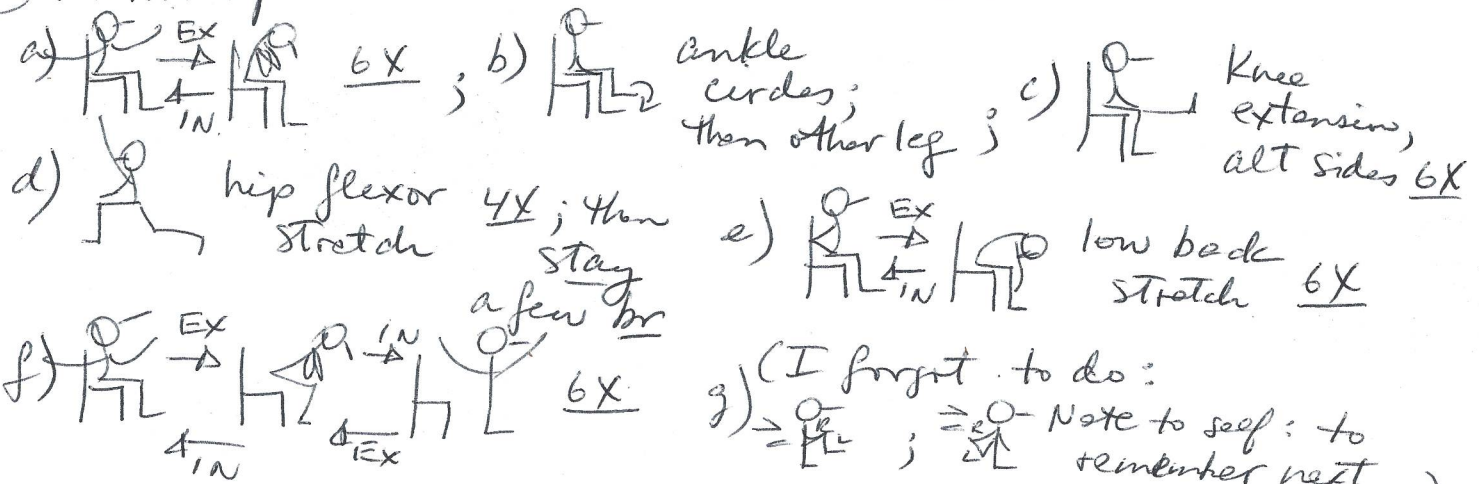 a) EX IN 6X ;
b) ankle
circles;
then other leg ;
c) Knee
extension,
alt sides 6X
d) hip flexor
stretch
4X ; then
stay
a few br
e) EX IN low back
stretch 6X
f) EX IN IN EX 6X
g) (I forgot to do:
; Note to self: to
remember next )